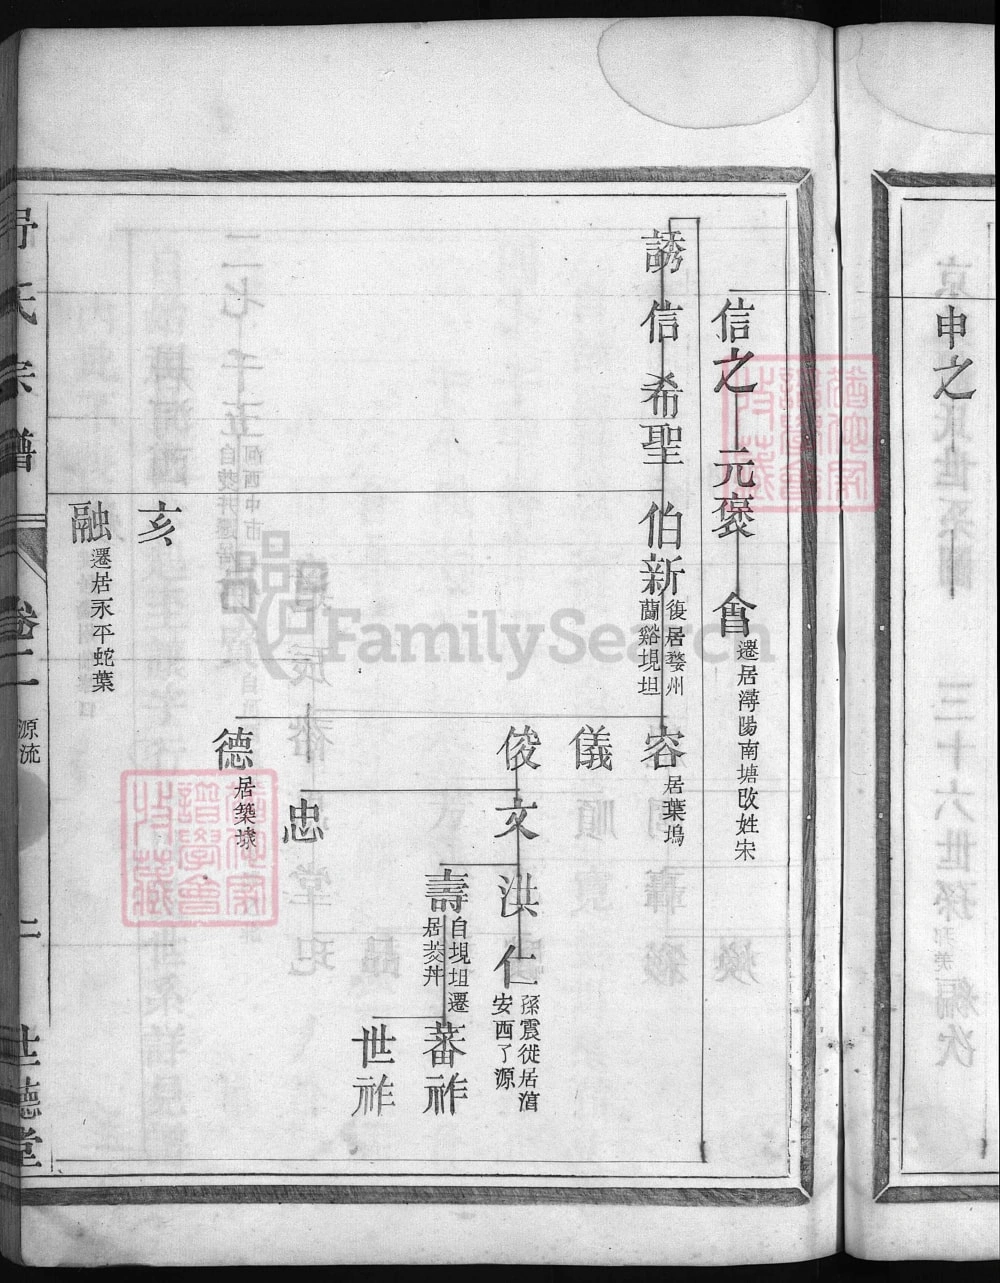 申之
信之 元褒 會 遷居潯陽南塘改姓宋
誘 信 希聖 伯新 復居婺州蘭谿垷坦
容 居葉塢
儀
俊 文 洪仁 孫震徙居湇安西了源
壽 自垷坦遷居菼丼
蕃祚
世祚
忠
德 居築墚
亥
融 遷居永平蛇葉
氏宗譜 卷二 源流 二 世德堂
FamilySearch